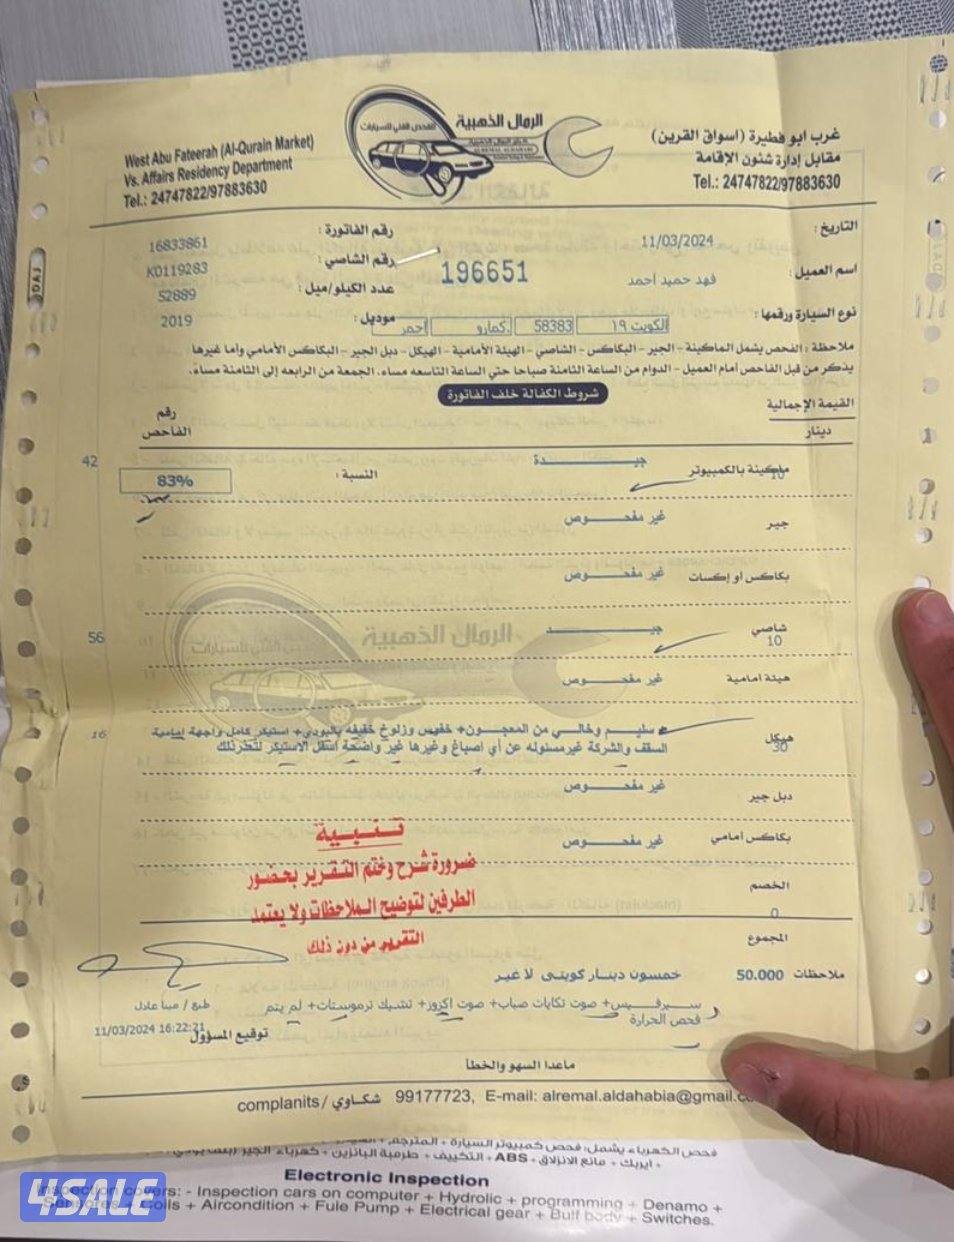 West Abu Fateerah (Al-Qurain Market)
Vs. Affairs Residency Department
Tel.: 24747822/97883630
الرمال الذهبية
للفحص الفني للسيارات
غرب ابو فطيرة (اسواق القرين)
مقابل إدارة شئون الإقامة
Tel.: 24747822/97883630
التاريخ : 11/03/2024
رقم الفاتورة : 16833861
اسم العميل : فهد حميد احمد
196651
رقم الشاصي : K0119283
عدد الكيلو/ميل : 52889
نوع السيارة ورقمها : الكويت ١٩ 58383 كمارو احمر
موديل : 2019
ملاحظة : الفحص يشمل الماكينة - الجير - البكاكس - الشاصي - الهيئة الأمامية - الهيكل - دبل الجير - البكاكس الأمامي وأما غيرها
يذكر من قبل الفاحص أمام العميل - الدوام من الساعة الثامنة صباحا حتى الساعة التاسعه مساء، الجمعة من الرابعه إلى الثامنة مساء.
شروط الكفالة خلف الفاتورة
القيمة الإجمالية
دينار
رقم
الفاحص
ماكينة بالكمبيوتر 10 جيدة النسبة : 83% 42
جير غير مفحوص
بكاكس أو إكسات غير مفحوص
شاصي 10 جيد 56
هيئة امامية غير مفحوص
هيكل 30 سليم وخالي من المعجون+ خفوس وزلوخ خفيفه بالبودي+ استيكر كامل واجهة امامية 16
السقف والشركة غيرمسئوله عن أي اصباغ وغيرها غير واضحة اسفل الاستيكر لتعذرذلك
دبل جير غير مفحوص
بكاكس امامي غير مفحوص
تنبية
ضرورة شرح وختم التقرير بحضور
الطرفين لتوضيح الملاحظات ولا يعتمد
التقرير من دون ذلك
الخصم
0
المجموع
50.000 خمسون دينار كويتى لا غير
ملاحظات
سيرفيس+ صوت تكايات صباب+ صوت اكزوز+ تشيك ترموستات+ لم يتم
فحص الحرارة
طبع / مينا عادل
11/03/2024 16:22:21
توقيع المسؤول
ماعدا السهو والخطأ
complanits/ شكاوي 99177723, E-mail: alremal.aldahabia@gmail.c
فحص الكهرباء يشمل: فحص كمبيوتر السيارة + المترجة +
+ ايربك + مانع الانزلاق + ABS + التكييف + طرمبة البانزين + كهرباء الجير
Electronic Inspection
Inspection covers: - Inspection cars on computer + Hydrolic + programming + Denamo +
Sensores + Coils + Aircondition + Fule Pump + Electrical gear + Buff body + Switches.
4SALE